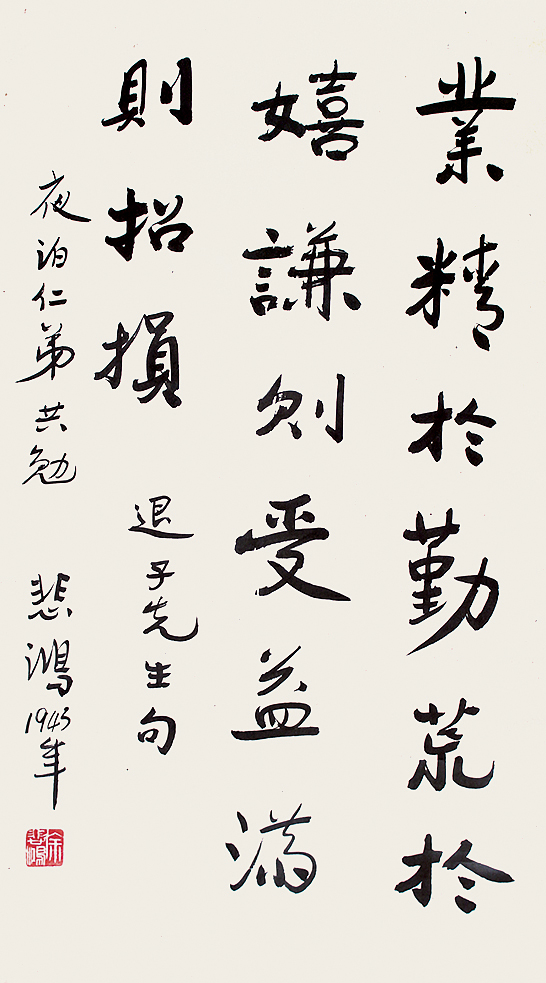 業精於勤荒於
嬉謙則受益滿
則招損
退子先生句
夜泊仁弟共勉
悲鴻
1943年